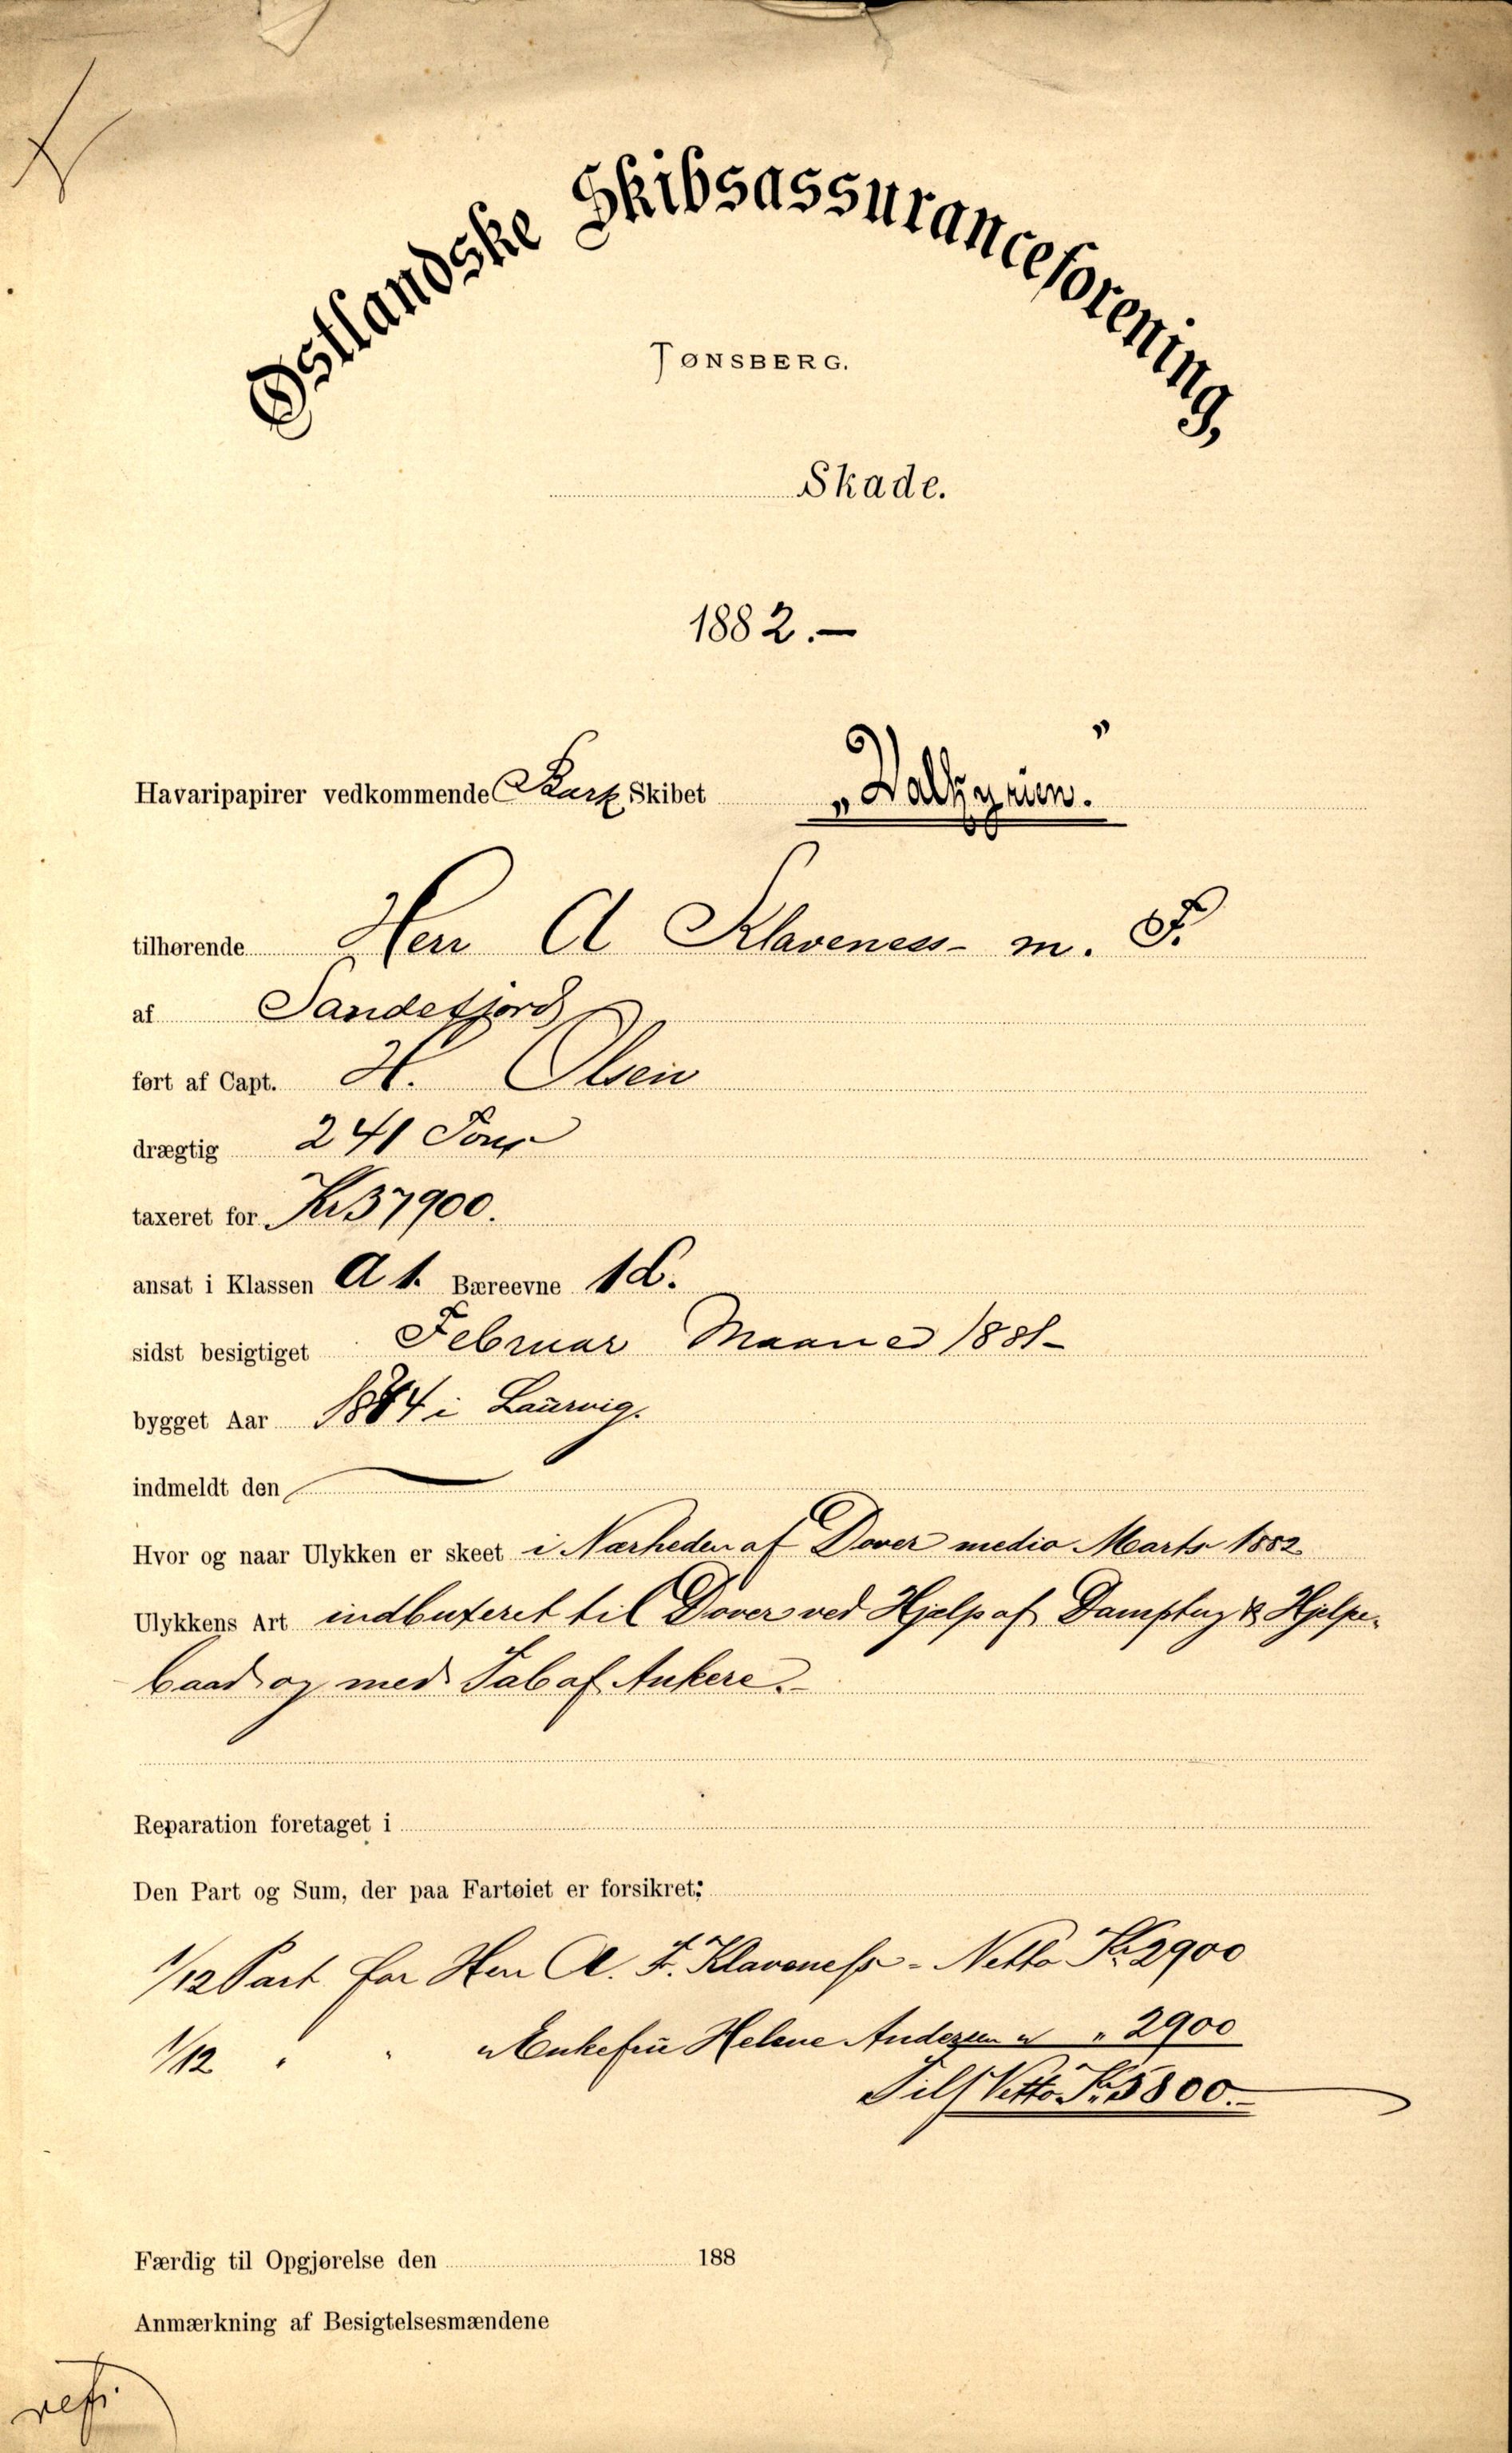 Østlandske Skibsassuranceforening,
TØNSBERG.
Skade.
1882.—
Havaripapirer vedkommende Bark Skibet „Valkyrien."
tilhørende Herr A Klaveness - m. F.
af Sandefjord
ført af Capt. H. Olsen
drægtig 241 Tons
taxeret for Kr 37900.
ansat i Klassen A 1. Bæreevne
sidst besigtiget Februar Maaned 1881-
bygget Aar i Laurvig.
indmeldt den
Hvor og naar Ulykken er skeet i Nærheden af Dover medio Marts 1882
Ulykkens Art indbuxeret til Dover ved Hjelp af Damptug & Hjelpe-
baad og med Tab af Ankere.-
Reparation foretaget i
Den Part og Sum, der paa Fartøiet er forsikret:
1/12 Part for Herr A. F. Klaveness - Netto Kr. 2900
1/12 " " " Enkefru Helene Andersen " " 2900
Tils Netto Kr. 5800.-
Færdig til Opgjørelse den 188
Anmærkning af Besigtelsesmændene